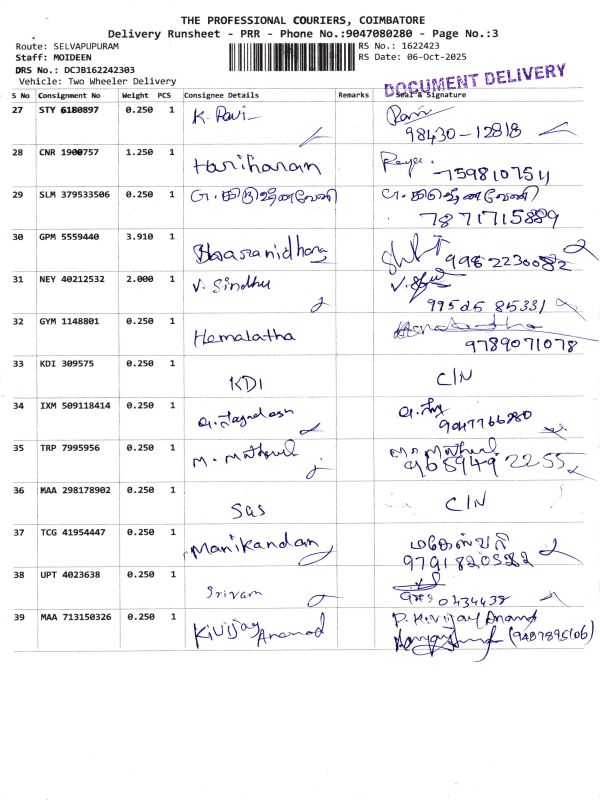 THE PROFESSIONAL COURIERS, COIMBATORE
Delivery Runsheet - PRR - Phone No.:9047080280 - Page No.:3
Route: SELVAPUPURAM RS No.: 1622423
Staff: MOIDEEN RS Date: 06-Oct-2025
DRS No.: DCJB162242303
Vehicle: Two Wheeler Delivery
DOCUMENT DELIVERY
S No Consignment No Weight PCS Consignee Details Remarks Seal & Signature
27 STY 6180897 0.250 1 K. Ravi Ravi
98430-12818
28 CNR 1900757 1.250 1 Hariharan
7598107511
29 SLM 379533506 0.250 1 G. கிருஷ்ணவேணி G. கிருஷ்ணவேணி
7871715889
30 GPM 5559440 3.910 1
9982230082
31 NEY 40212532 2.000 1 V. Sindhu
99505 85331
32 GYM 1148801 0.250 1 Hemalatha
9789071078
33 KDI 309575 0.250 1 KDI C/N
34 IXM 509118414 0.250 1 G. Jagadesh
9047766280
35 TRP 7995956 0.250 1
36 MAA 298178902 0.250 1 SGS C/N
37 TCG 41954447 0.250 1 Manikandan மகேஸ்வரி
38 UPT 4023638 0.250 1 Sriram
39 MAA 713150326 0.250 1 P. K. Vijay Anand
(9487895106)